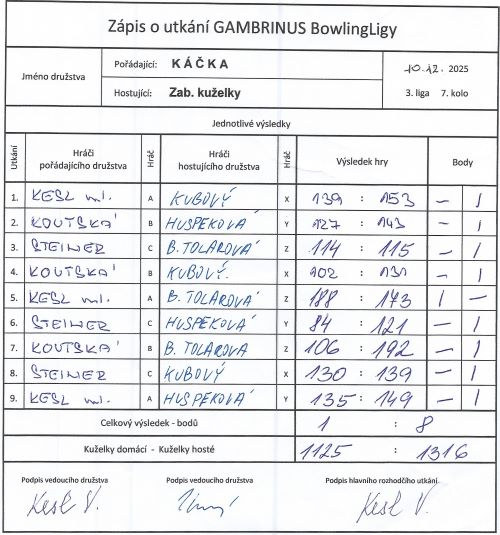 Zápis o utkání GAMBRINUS BowlingLigy
Jméno družstva
Pořádající: KÁČKA
Hostující: Zab. kuželky
10.12. 2025
3. liga 7. kolo
Jednotlivé výsledky
Utkání Hráči pořádajícího družstva Hráč Hráči hostujícího družstva Hráč Výsledek hry Body
1. KESL ml. A KUBOVÝ X 139 : 153 – 1
2. KOUTSKÁ B HUSPEKOVÁ Y 127 : 143 – 1
3. STEINER C B. TOLAROVÁ Z 114 : 115 – 1
4. KOUTSKÁ B KUBOVÝ. X 102 : 131 – 1
5. KESL ml. A B. TOLAROVÁ Z 188 : 173 1 –
6. STEINER C HUSPEKOVÁ Y 84 : 121 – 1
7. KOUTSKÁ B B. TOLAROVÁ Z 106 : 192 – 1
8. STEINER C KUBOVÝ X 130 : 139 – 1
9. KESL ml. A HUSPEKOVÁ Y 135 : 149 – 1
Celkový výsledek - bodů 1 : 8
Kuželky domácí - Kuželky hosté 1125 : 1316
Podpis vedoucího družstva Podpis vedoucího družstva Podpis hlavního rozhodčího utkání
Kesl V. Kesl V.